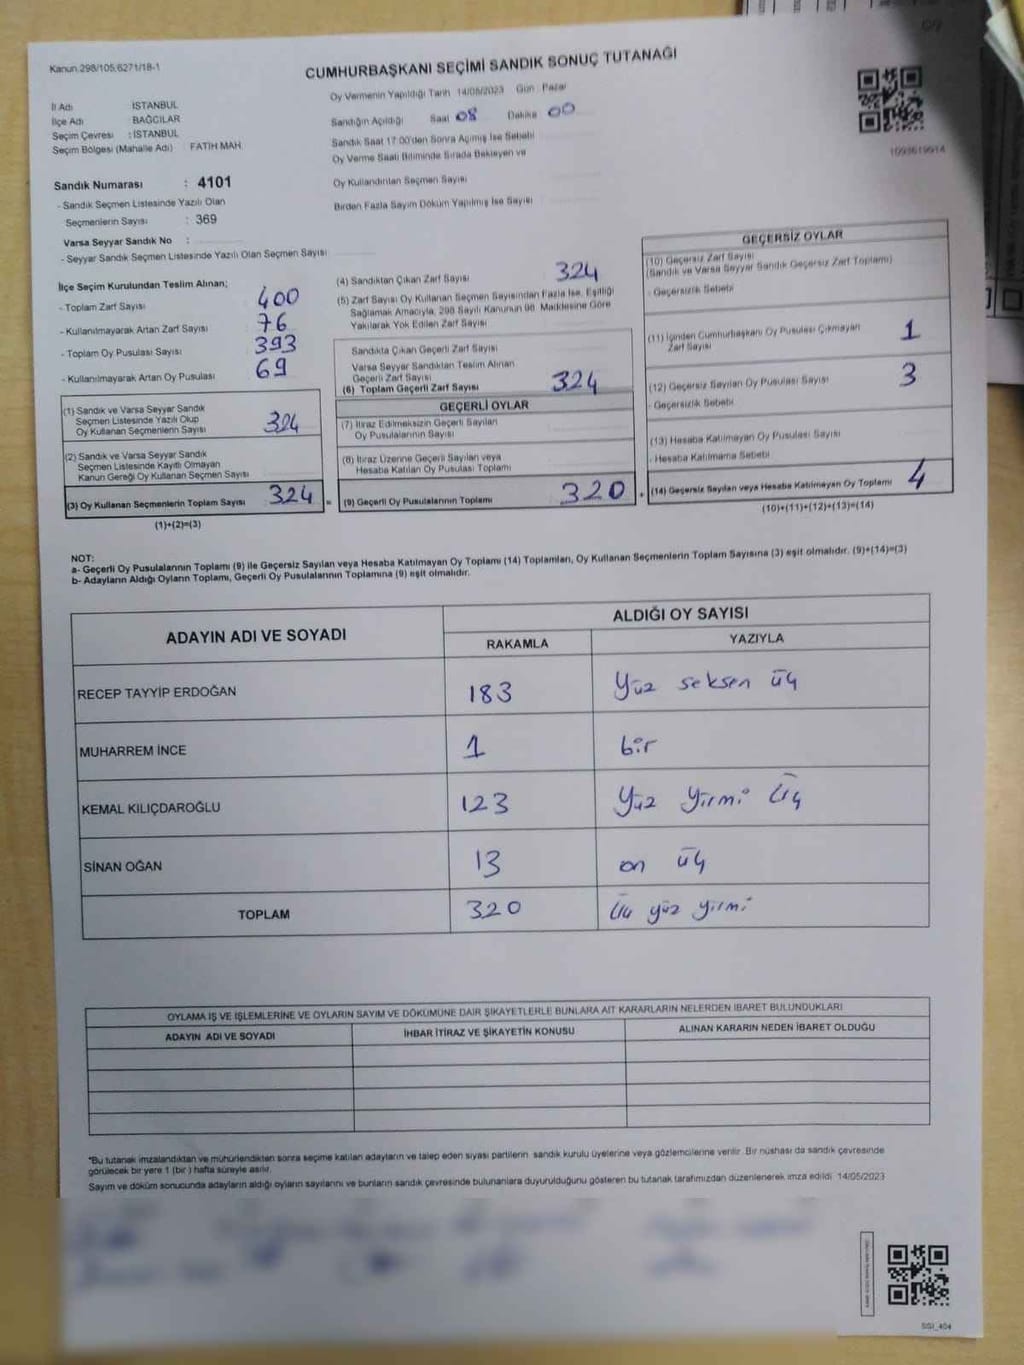 Kanun.298/105,6271/18-1
CUMHURBAŞKANI SEÇİMİ SANDIK SONUÇ TUTANAĞI
İl Adı İSTANBUL
İlçe Adı BAĞCILAR
Seçim Çevresi : İSTANBUL
Seçim Bölgesi (Mahalle Adı) FATİH MAH.
Sandık Numarası : 4101
- Sandık Seçmen Listesinde Yazılı Olan
Seçmenlerin Sayısı : 369
Varsa Seyyar Sandık No :
- Seyyar Sandık Seçmen Listesinde Yazılı Olan Seçmen Sayısı
Oy Vermenin Yapıldığı Tarih 14/05/2023 Gün Pazar
Sandığın Açıldığı Saat 08 Dakika 00
Sandık Saat 17.00'den Sonra Açılmış İse Sebebi
Oy Verme Saati Bitiminde Sırada Bekleyen ve
Oy Kullandırılan Seçmen Sayısı
Birden Fazla Sayım Döküm Yapılmış İse Sayısı
1093619914
İlçe Seçim Kurulundan Teslim Alınan;
- Toplam Zarf Sayısı 400
- Kullanılmayarak Artan Zarf Sayısı 76
- Toplam Oy Pusulası Sayısı 393
- Kullanılmayarak Artan Oy Pusulası 69
(1) Sandık ve Varsa Seyyar Sandık
Seçmen Listesinde Yazılı Olup
Oy Kullanan Seçmenlerin Sayısı 324
(2) Sandık ve Varsa Seyyar Sandık
Seçmen Listesinde Kayıtlı Olmayan
Kanun Gereği Oy Kullanan Seçmen Sayısı
(3) Oy Kullanan Seçmenlerin Toplam Sayısı 324 =
(1)+(2)=(3)
(4) Sandıktan Çıkan Zarf Sayısı 324
(5) Zarf Sayısı Oy Kullanan Seçmen Sayısından Fazla İse, Eşitliği
Sağlamak Amacıyla, 298 Sayılı Kanunun 98. Maddesine Göre
Yakılarak Yok Edilen Zarf Sayısı
Sandıkta Çıkan Geçerli Zarf Sayısı
Varsa Seyyar Sandıktan Teslim Alınan
Geçerli Zarf Sayısı
(6) Toplam Geçerli Zarf Sayısı 324
GEÇERLİ OYLAR
(7) İtiraz Edilmeksizin Geçerli Sayılan
Oy Pusulalarının Sayısı
(8) İtiraz Üzerine Geçerli Sayılan veya
Hesaba Katılan Oy Pusulası Toplamı
(9) Geçerli Oy Pusulalarının Toplamı 320 +
GEÇERSİZ OYLAR
(10) Geçersiz Zarf Sayısı
(Sandık ve Varsa Seyyar Sandık Geçersiz Zarf Toplamı)
- Geçersizlik Sebebi
(11) İçinden Cumhurbaşkanı Oy Pusulası Çıkmayan
Zarf Sayısı 1
(12) Geçersiz Sayılan Oy Pusulası Sayısı 3
- Geçersizlik Sebebi
(13) Hesaba Katılmayan Oy Pusulası Sayısı
- Hesaba Katılmama Sebebi
(14) Geçersiz Sayılan veya Hesaba Katılmayan Oy Toplamı 4
(10)+(11)+(12)+(13)=(14)
NOT:
a- Geçerli Oy Pusulalarının Toplamı (9) ile Geçersiz Sayılan veya Hesaba Katılmayan Oy Toplamı (14) Toplamları, Oy Kullanan Seçmenlerin Toplam Sayısına (3) eşit olmalıdır. (9)+(14)=(3)
b- Adayların Aldığı Oyların Toplamı, Geçerli Oy Pusulalarının Toplamına (9) eşit olmalıdır.
ADAYIN ADI VE SOYADI ALDIĞI OY SAYISI
RAKAMLA YAZIYLA
RECEP TAYYİP ERDOĞAN 183 Yüz seksen üç
MUHARREM İNCE 1 bir
KEMAL KILIÇDAROĞLU 123 Yüz Yirmi Üç
SİNAN OĞAN 13 on üç
TOPLAM 320 Üç yüz yirmi
OYLAMA İŞ VE İŞLEMLERİNE VE OYLARIN SAYIM VE DÖKÜMÜNE DAİR ŞİKAYETLERLE BUNLARA AİT KARARLARIN NELERDEN İBARET BULUNDUKLARI
ADAYIN ADI VE SOYADI İHBAR İTİRAZ VE ŞİKAYETİN KONUSU ALINAN KARARIN NEDEN İBARET OLDUĞU
*Bu tutanak imzalandıktan ve mühürlendikten sonra seçime katılan adayların ve talep eden siyasi partilerin sandık kurulu üyelerine veya gözlemcilerine verilir. Bir nüshası da sandık çevresinde
görülecek bir yere 1 (bir) hafta süreyle asılır.
Sayım ve döküm sonucunda adayların aldığı oyların sayılarını ve bunların sandık çevresinde bulunanlara duyurulduğunu gösteren bu tutanak tarafımızdan düzenlenerek imza edildi. 14/05/2023
SGI_404